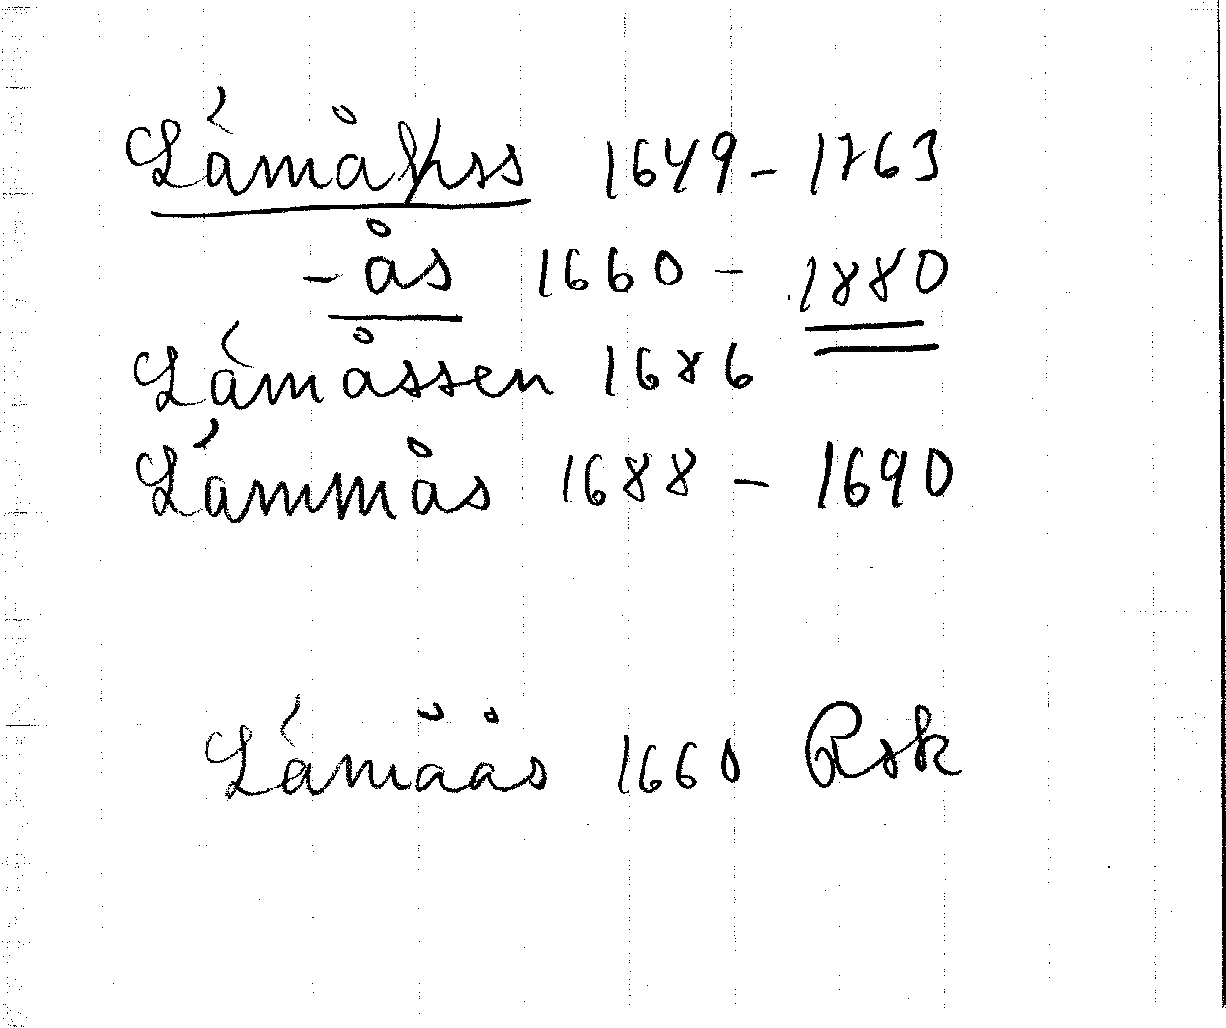 Låmåhss 1649-1763
-ås 1660 - 1880
Låmåssen 1686
Låmmås 1688 - 1690
Låmåås 1660 Rsk